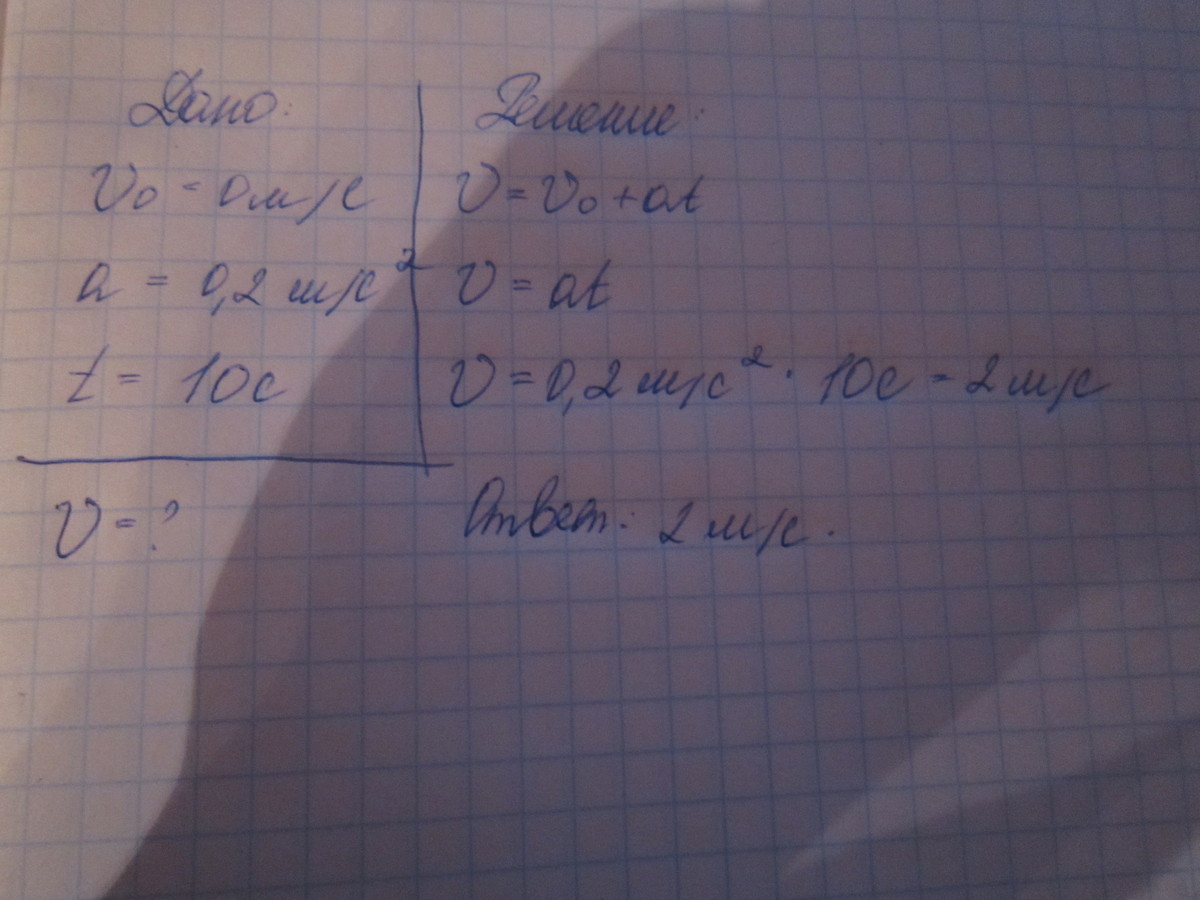 Дано:
υ₀ = 0 м/с
a = 0,2 м/с²
t = 10с
υ = ?
Решение:
υ = υ₀ + at
υ = at
υ = 0,2 м/с² · 10с = 2 м/с
Ответ: 2 м/с.